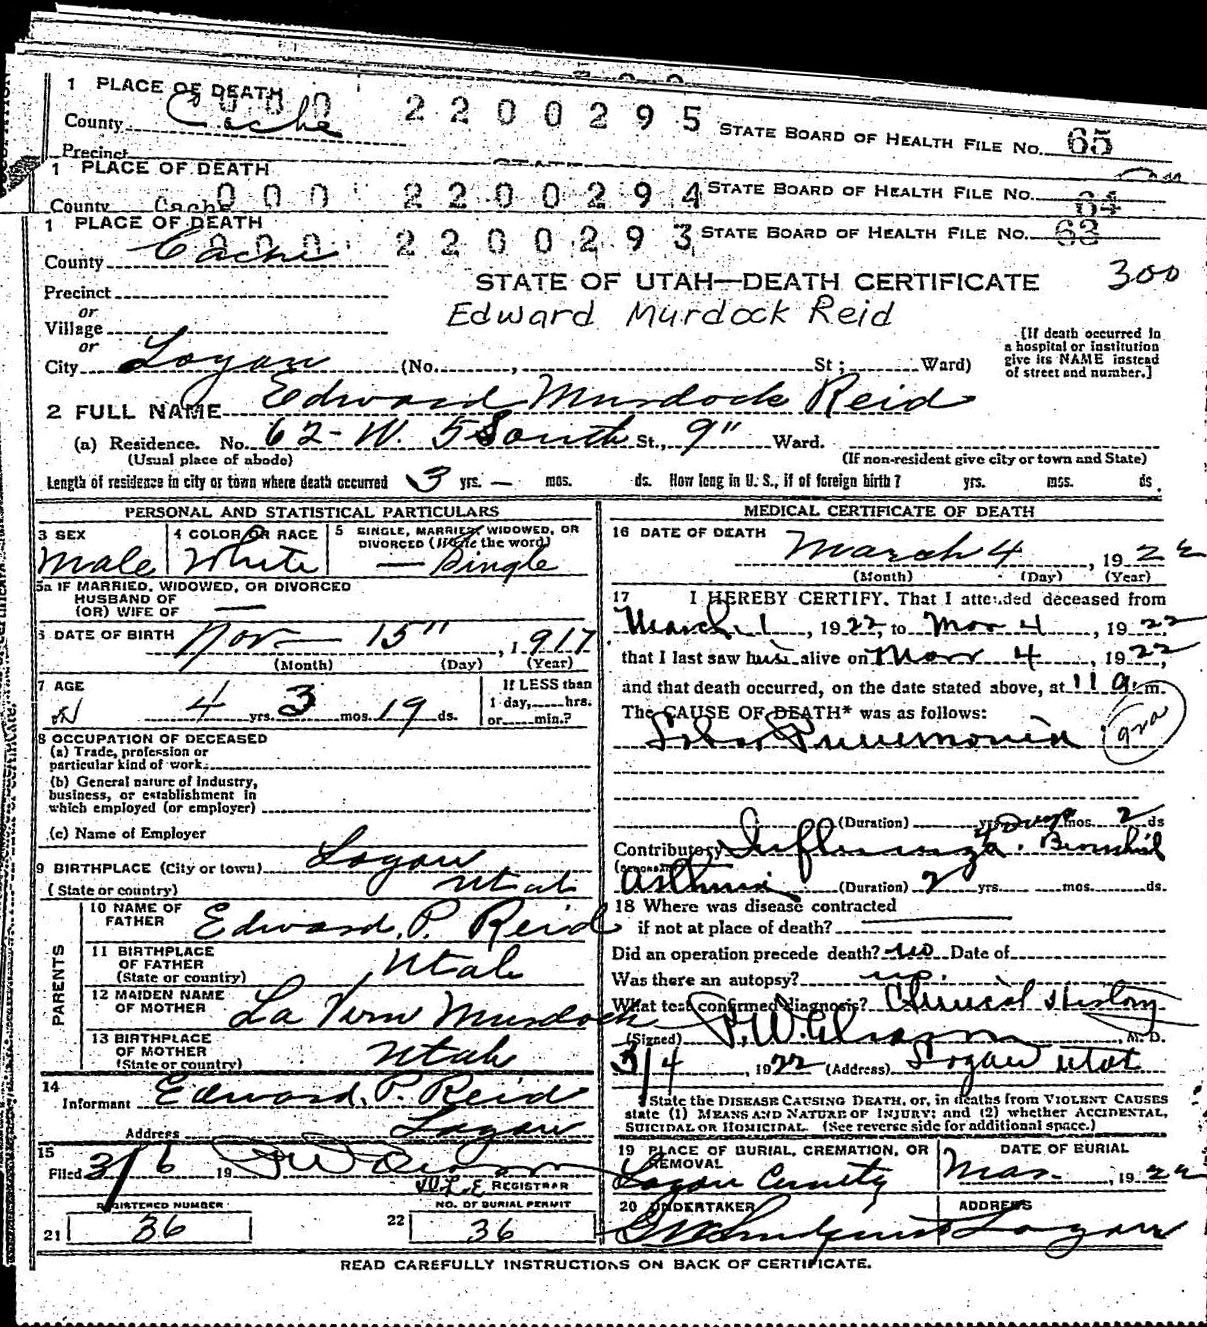 1 PLACE OF DEATH
County Cache
000 2200295
STATE BOARD OF HEALTH FILE NO. 65
Precinct
1 PLACE OF DEATH
County Cache
000 2200294
STATE BOARD OF HEALTH FILE NO. 64
1 PLACE OF DEATH
000 2200293
STATE BOARD OF HEALTH FILE NO. 63
County Cache
STATE OF UTAH—DEATH CERTIFICATE
300
Precinct
or
Edward Murdock Reid
Village
or
City Logan (No. , St; Ward)
[If death occurred in
a hospital or institution
give its NAME instead
of street and number.]
2 FULL NAME Edward Murdock Reid
(a) Residence. No. 62 - W. 5 South St., 9" Ward.
(Usual place of abode)
(If non-resident give city or town and State)
Length of residence in city or town where death occurred 3 yrs. — mos. ds. How long in U. S., if of foreign birth? yrs. mos. ds.
PERSONAL AND STATISTICAL PARTICULARS
3 SEX Male
4 COLOR OR RACE White
5 SINGLE, MARRIED, WIDOWED, OR
DIVORCED (Write the word)
— Single
5a IF MARRIED, WIDOWED, OR DIVORCED
HUSBAND OF
(OR) WIFE OF —
6 DATE OF BIRTH Nov — 15" , 1917
(Month) (Day) (Year)
7 AGE
4 yrs. 3 mos. 19 ds.
If LESS than
1 day, hrs.
or min.?
8 OCCUPATION OF DECEASED
(a) Trade, profession or
particular kind of work
(b) General nature of industry,
business, or establishment in
which employed (or employer)
(c) Name of Employer
9 BIRTHPLACE (City or town) Logan
(State or country) Utah
PARENTS
10 NAME OF
FATHER Edward. P. Reid
11 BIRTHPLACE
OF FATHER
(State or country) Utah
12 MAIDEN NAME
OF MOTHER La Vern Murdock
13 BIRTHPLACE
OF MOTHER
(State or country) Utah
14
Informant Edward. P. Reid
Address Logan
15
Filed 3/6 19
REGISTRAR
REGISTERED NUMBER
21 36
NO. OF BURIAL PERMIT
22 36
MEDICAL CERTIFICATE OF DEATH
16 DATE OF DEATH
March 4 , 1922
(Month) (Day) (Year)
17 I HEREBY CERTIFY, That I attended deceased from
March 1 , 1922, to Mar 4 , 1922,
that I last saw him alive on Mar 4 , 1922,
and that death occurred, on the date stated above, at 11 a. m.
The CAUSE OF DEATH* was as follows:
Lobar Pneumonia
(Duration) yrs. mos. 2 ds
4 Days
Contributory Influenza. Bronchial
Asthma (Duration) 2 yrs. mos. ds.
18 Where was disease contracted
if not at place of death?
Did an operation precede death? no Date of
Was there an autopsy? no.
What test confirmed diagnosis? Clinical History
(Signed) , M. D.
3/4 , 1922 (Address) Logan Utah
*State the DISEASE CAUSING DEATH, or, in deaths from VIOLENT CAUSES
state (1) MEANS AND NATURE OF INJURY; and (2) whether ACCIDENTAL,
SUICIDAL OR HOMICIDAL. (See reverse side for additional space.)
19 PLACE OF BURIAL, CREMATION, OR
REMOVAL
DATE OF BURIAL
Logan Mar. , 1922
20 UNDERTAKER
ADDRESS
Logan
READ CAREFULLY INSTRUCTIONS ON BACK OF CERTIFICATE.